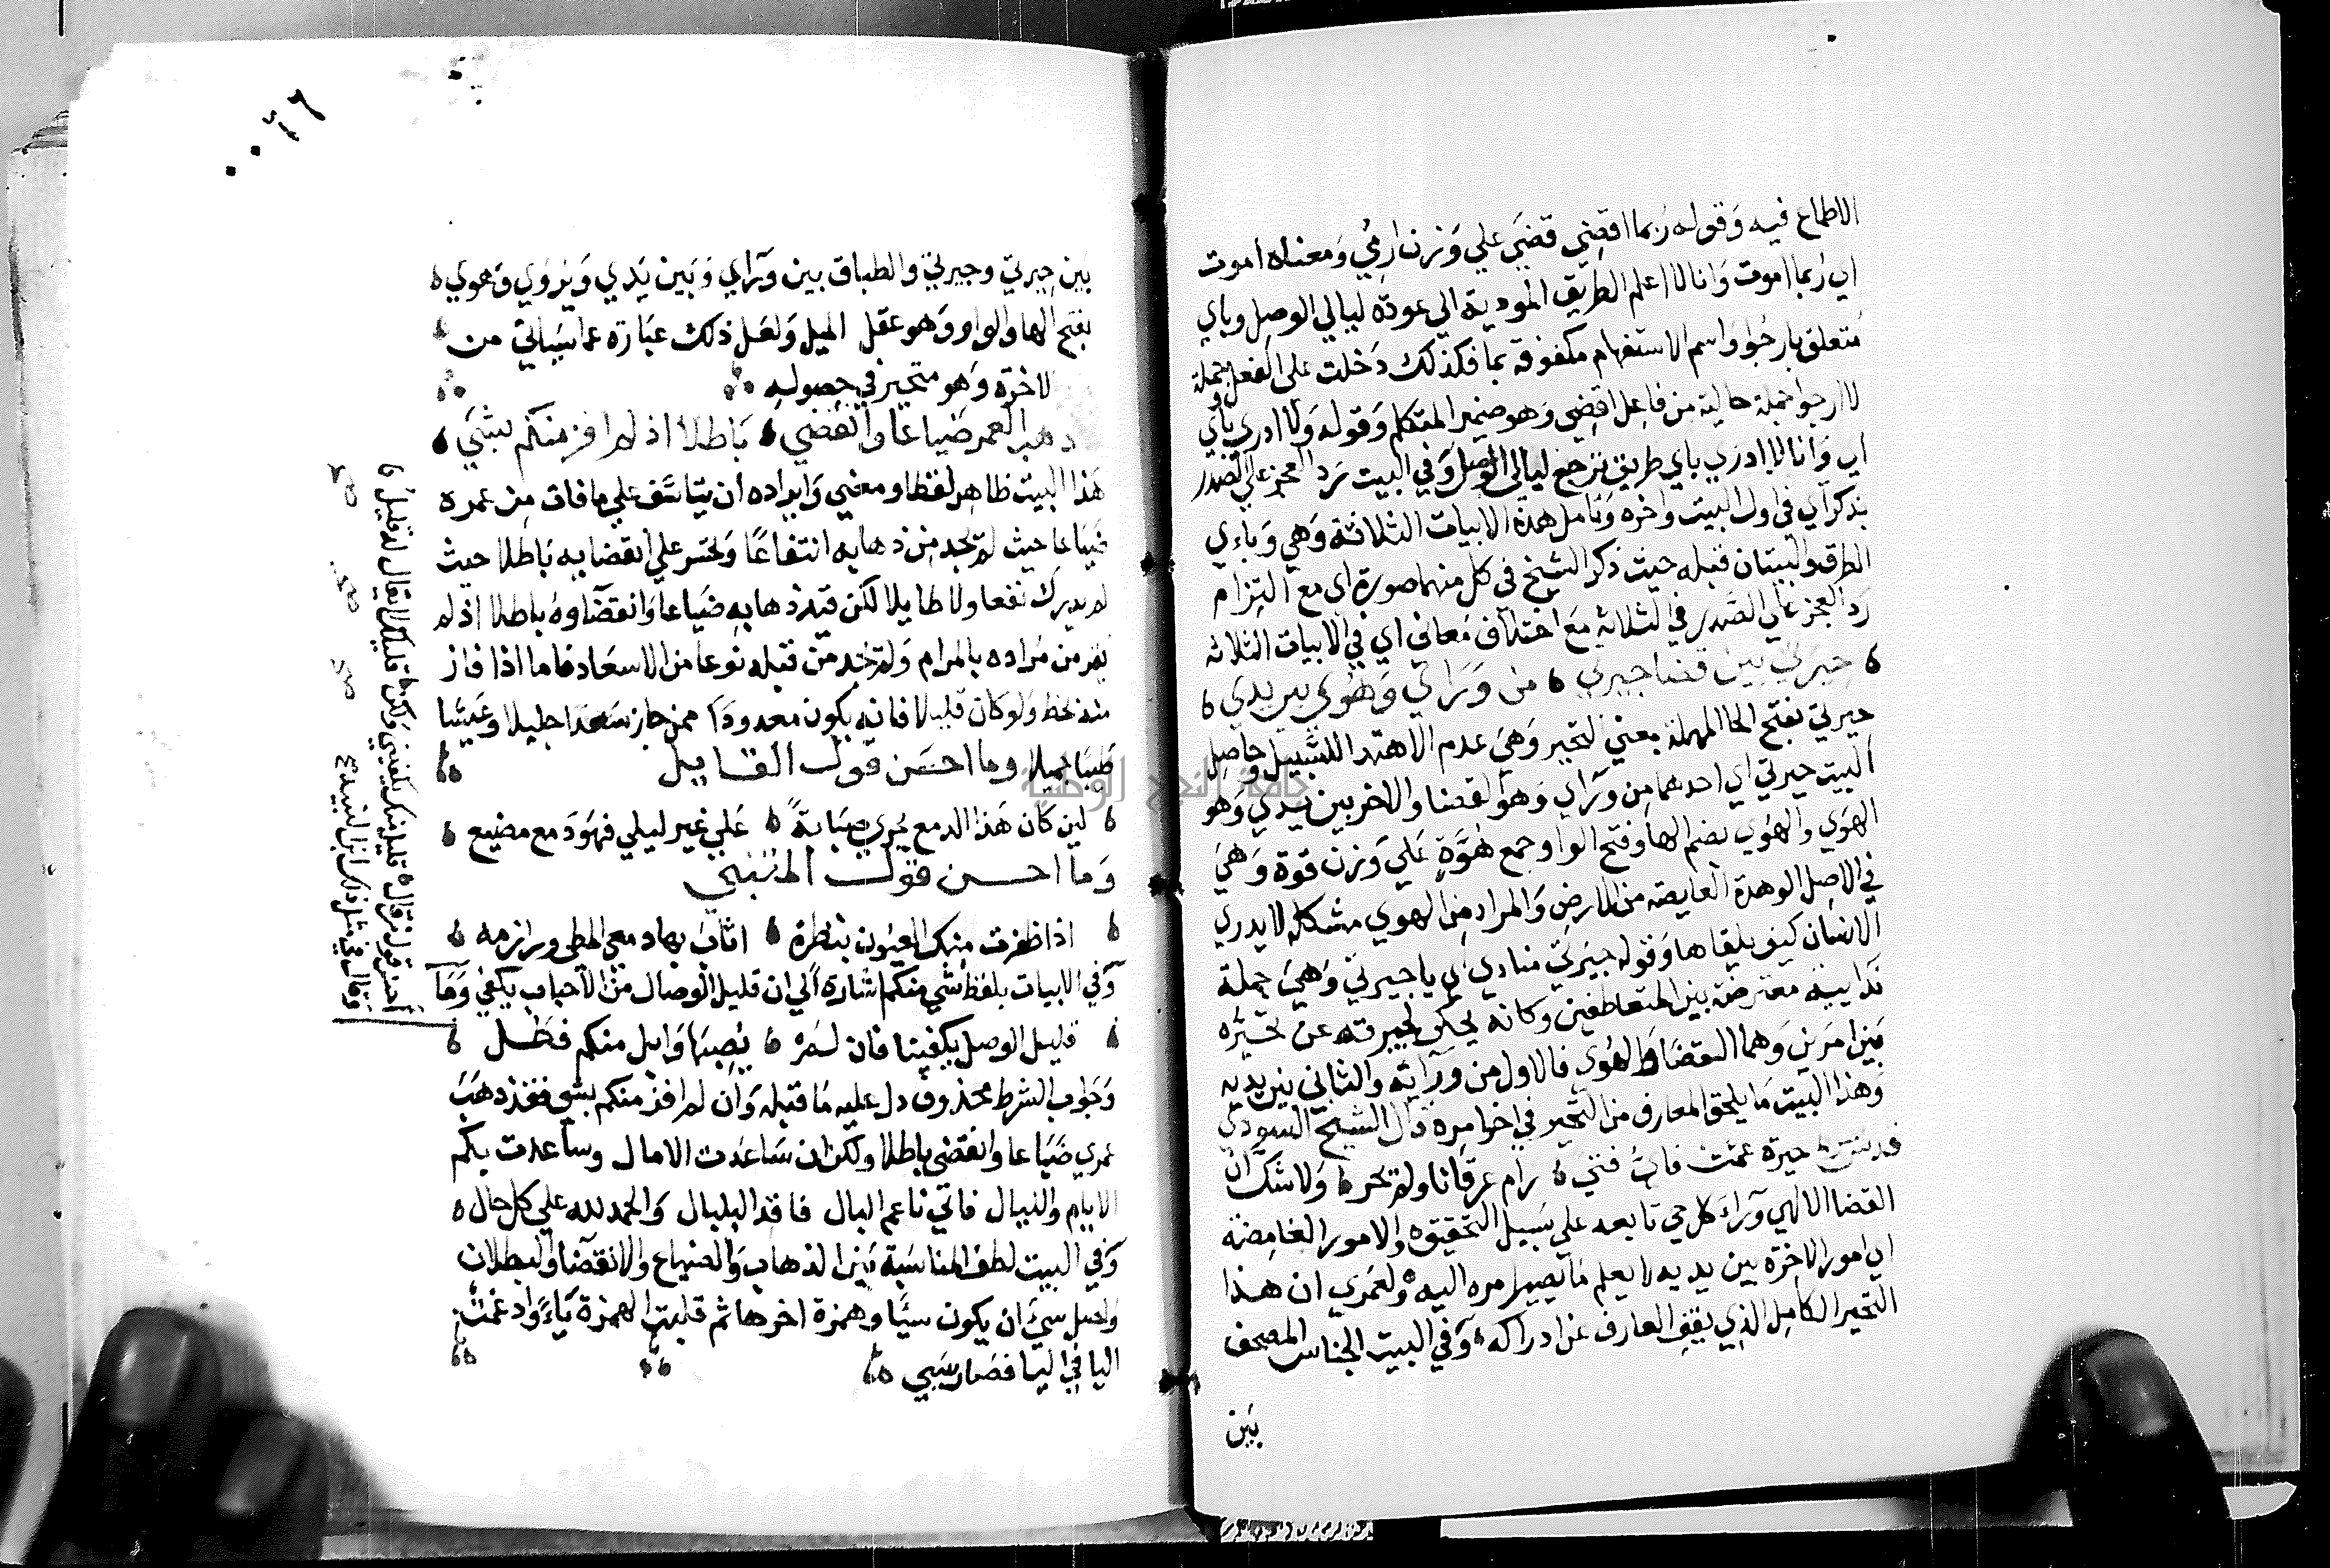 الاطماع فيه وَقوله رُبما اقضِي قضَي علي وَزن ارمي وَمعناه اموت
اي رُبما اموت وَانا لا اعلم الطريق المودية الي عودة ليالي الوصل وباي
مُتعلق بارجُوا واسم الاستفهام مكفوفة بما فكذلك دَخلت على الفعل وجملة
لا ارجوا جملة حالية من فاعل اقضِي وَهو ضمير المتكلم وَقوله وَلا ادري باي
اي وَانا لا ادري باي طريق ترجع ليالي الوصل وَفي البيت رَد العجز علي الصدر
بذكر اي في اول البيت واخره وَتامل هذه الابيات الثلاثة وَهي وَباءي
الطرق والبيتان قبله حيث ذكر الشيخ في كل منهما صورة اي مع التِزام
رَد العجز علي الصَدر في الثلاثة مَع اختلاف مَعاني اي في الابيات الثلاثه
حَيرتي بَين قضا جيرتي من وَرَائي وَهُوي بين يدي
حيرتي بفتح الحا المهملة بمعني التحير وَهي عدم الاهتدا للسَّبيل وحاصِل
البيت حيرتي اي احدهما مِن ورَآي وَهو القضا والاخر بين يدي وَهو
الهُوي والهُوي بضم الها وفتح الواو جمع هُوَّةٍ عَلي وَزن قوة وَهي
في الاصِل الوهدة الغايصة من الارض وَالمراد من الهوي مشكلة لا يدري
الانسان كيف يلقاها وَقوله جيرتي منادي اي يا جيرتي وَهي جملة
نَدايية معترضة بين المتعاطفين وكانه يحكي لجيرته عن تحيّره
بَين امرَين وَهما القضا وَالهُوي فالاول من وَرَآيه وَالثاني بين يديه
وَهذا البيت مَا يلحق المعارف من التحير في اخر امره قال الشيخ السودي
حيرة عمّت فاي فتي رام عرفانا ولم يحر وَلا شك ان
القضا الالهي وَرآء كل حي تابعه علي سَبيل التحقيق والامور الغامِضة
اي امور الاخرة بين يديه لا يعلم مَا يصير امره اليه وَلعَمري ان هذا
التحير الكامل الذي يقف العارف عن ادراكه وَفي البيت الجناس المصحف
بَين
بَين حِيرتي وجيرتي والطباق بين وَرَآي وَبَين يَدي وَيُروَي وَهوي
بفتح الها والواو وَهو عَقل الميل وَلعَل ذلك عبَارة عما سَياتي من
لاخرَة وَهو متحير في حصوله
ذهب العمر ضَياعا وانقضي بَاطلا اذ لم افز منكم بشَي
هَذا البيت ظاهر لفظا ومعني وَايراده ان يتاسَّف علي ما فات مِن عمره
ضَيَاعا حيث لم يجد مِن ذهابه انتفاعًا وَتحسر علي انقضايه بَاطلا حيث
لم يدرك نفعا ولا طايلا لكن قيد ذهابه ضَيَاعا وَانقضآوهُ باطلا اذ لم
يفز من مُراده بالمرام وَلم يجد من قبله نوعا من الاسعَاد فاما اذا فاز
منه بحظ وَلو كان قليلا فانه يكون معدودَا ممن حاز سَعدا جليلا وَعَيشا
طَيبا جميلا وما احسَن قول القايل
لين كان هَذا الدمع يَجري صَبَابةً عَلي غير ليلي فهوَ دَمع مضيع
وَما احسن قول المتنبي
اذا ظفرت منك العيون بنظرة اثابَ بها معي المطي ورازمه
وَفي الابيات بلفظ شي منكم اشارة الي ان قليل الوصال من الاحباب يكفي وَمَا
قليل الوصل يكفينا فان لم يُصِبها وَابل منكم فطَل
وَجَواب الشرط محذوف دل عليه مَا قبله وَان لم افز منكم بشي فقد ذهَبَ
عمري ضَيَاعا وانقضي باطلا ولكن ان سَاعَدت الامال وساعدت بكم
الايام والليال فاني ناعم البال فاقد البلبال وَالحمد لله علي كل حال
وَفي البيت لطف المناسَبة بَين الذهاب وَالضياع والانقضآ وَالبطلان
وَاصل شيء ان يكون شيئا وهمزة اخرها ثم قلبت الهمزة ياءً وَادغمت
اليا في اليا فصَار شي
احسن قول من قال قليل منك يكفيني ولكن قليلك لا يقال له قليل